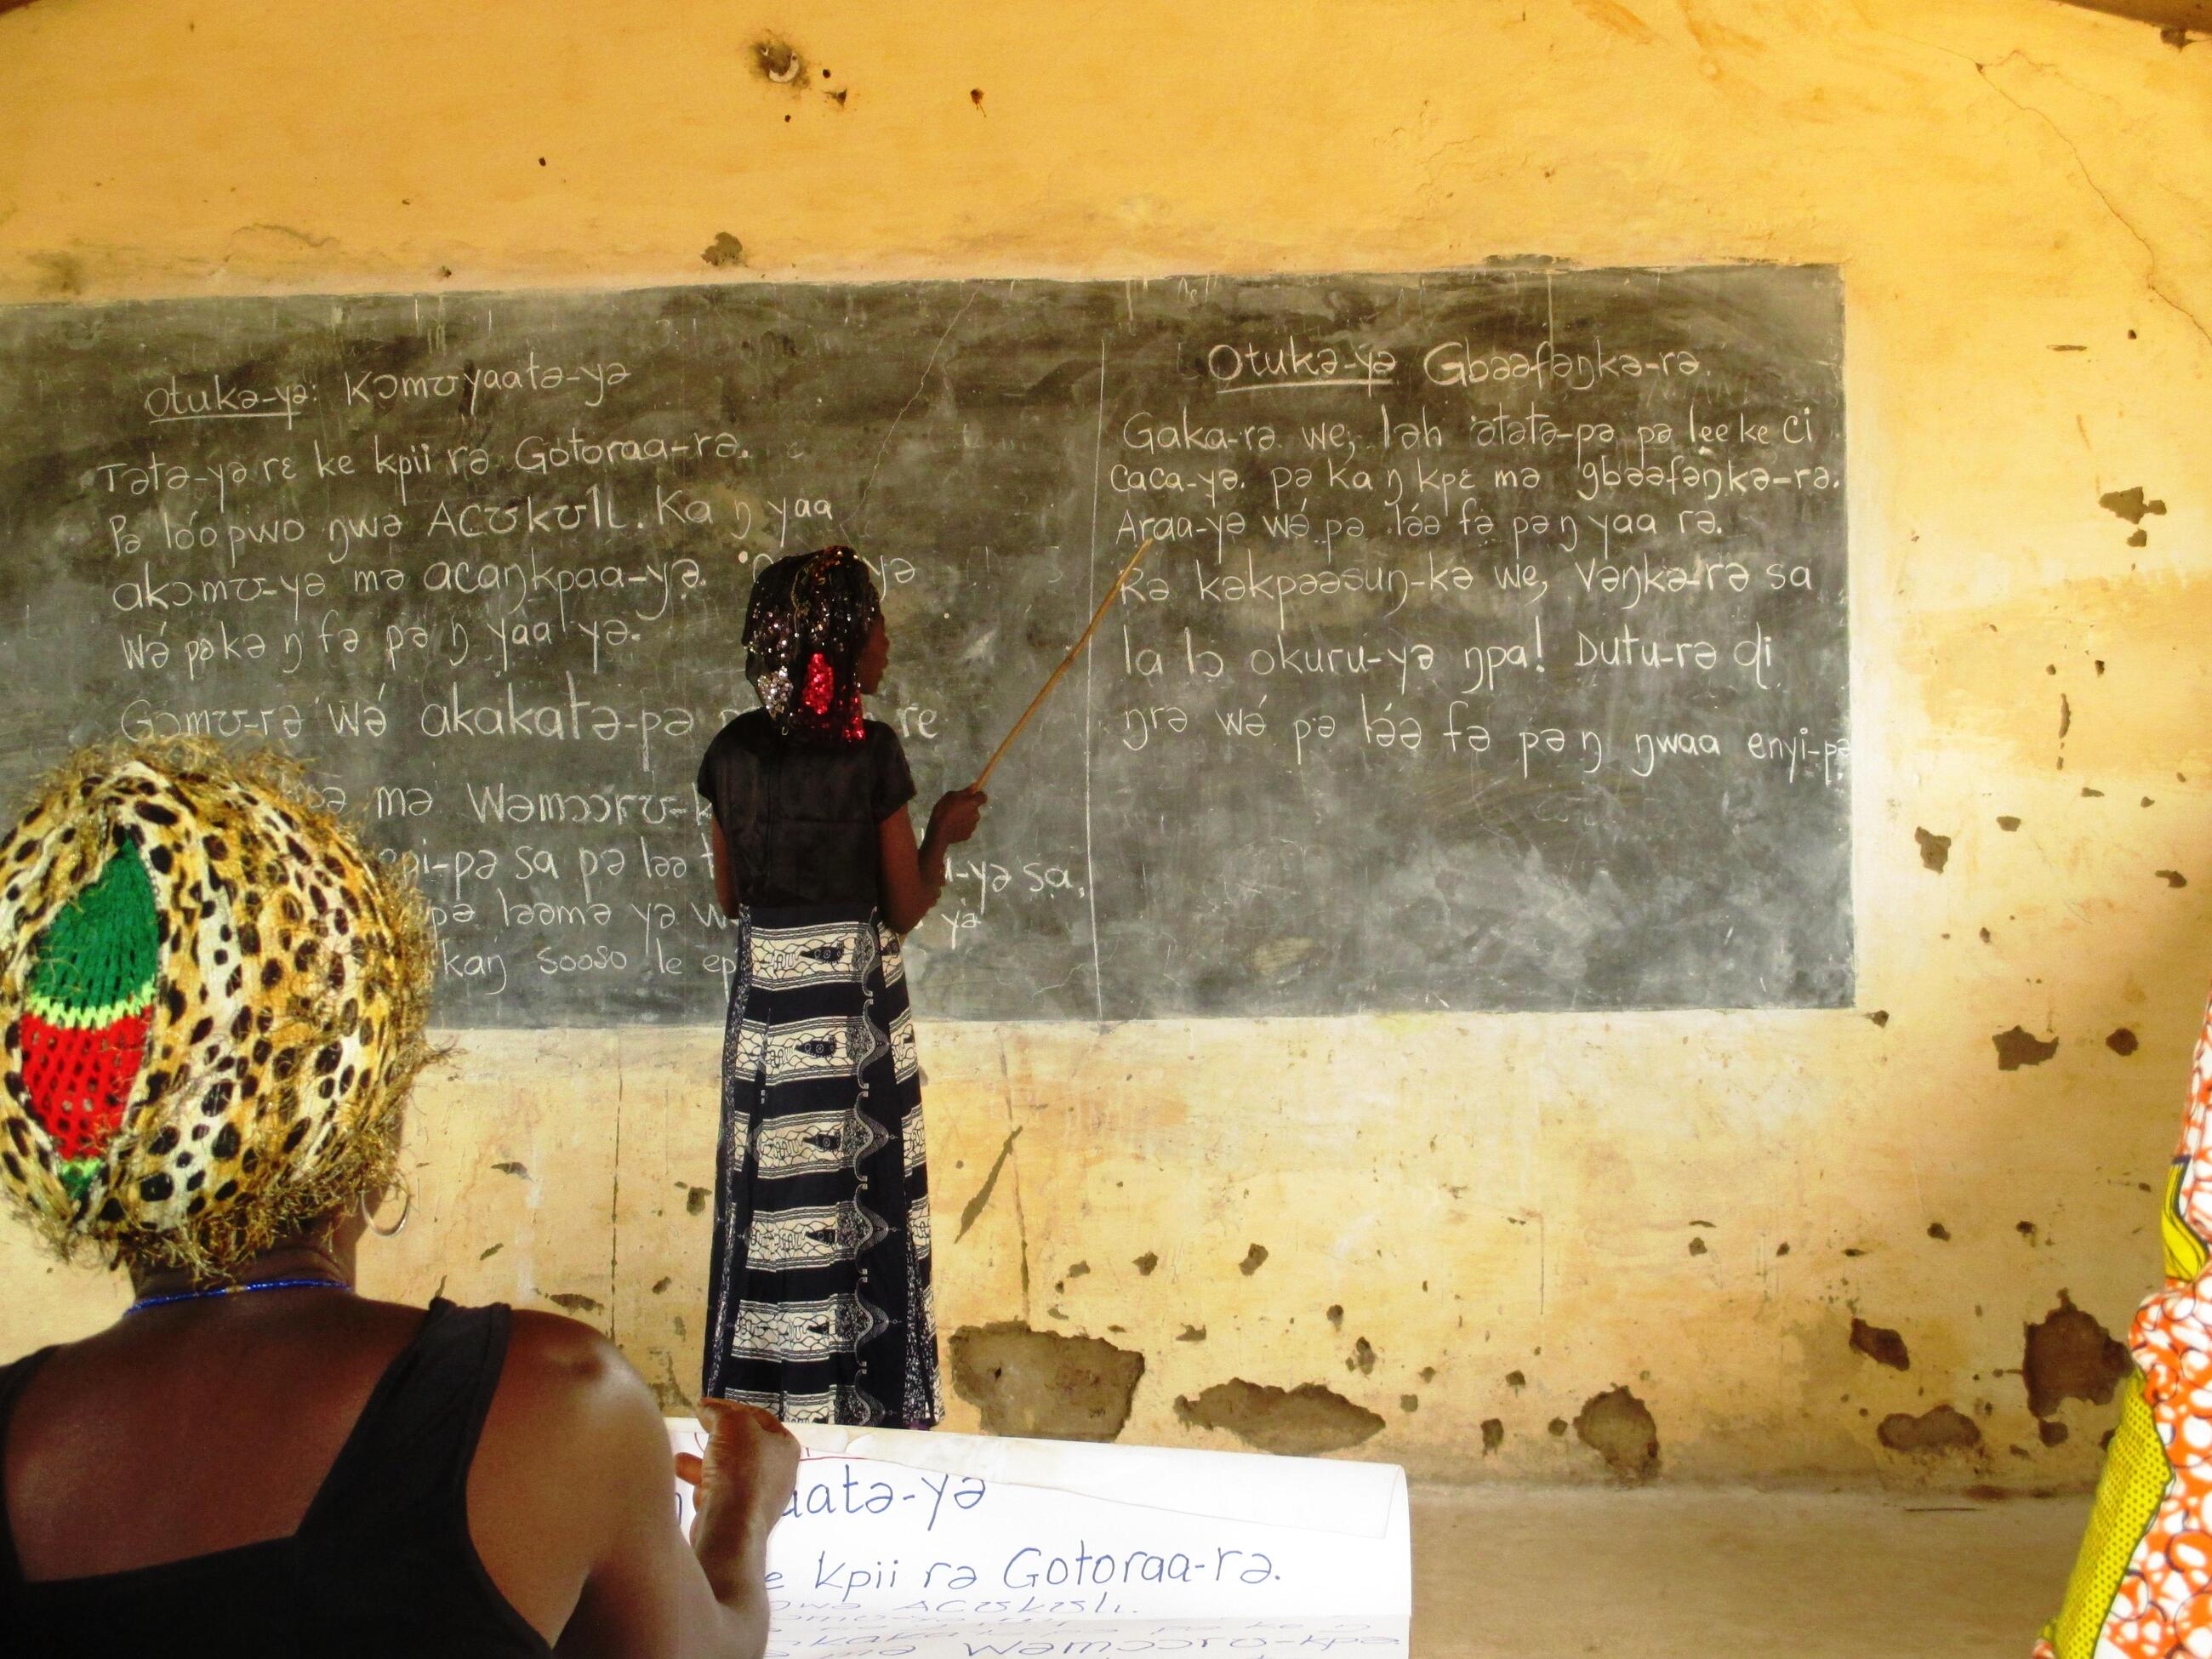 Otukə-yə: Kɔmʊyaatə-yə
Tətə-yə rɛ ke kpii rə Gotoraa-rə.
Pə lóo pwo ŋwə ACƱKƱLI. Ka ŋ yaa
akɔmʊ-yə mə acaŋkpaa-yə. yə
Wə́ pəkə ŋ fə pə ŋ yaa yə.
Gɔmʊ-rə wə́ akakatə-pə re
mə Wəmɔɔrʊ-k
pi-pə sa pə ləə -yə sa,
pə ləəmə yə yə
kaŋ sooso le
Otukə-yə Gbəəfəŋkə-rə.
Gaka-rə we, ləh ətətə-pə pə lee ke ci
caca-yə. pə ka ŋ kpɛ mə gbəəfəŋkə-rə.
Araa-yə wə́ pə lə́ə fə pə ŋ yaa rə.
Rə kəkpəəsuŋ-kə we, Vəŋkə-rə sa
la lɔ okuru-yə ŋpa! Dutu-rə ɖi
ŋrə wə́ pə lə́ə fə pə ŋ ŋwaa enyi-pə
aatə-yə
e kpii rə Gotoraa-rə.
ŋwə ACƱKƱLI.
mə Wəmɔɔrʊ-kpə